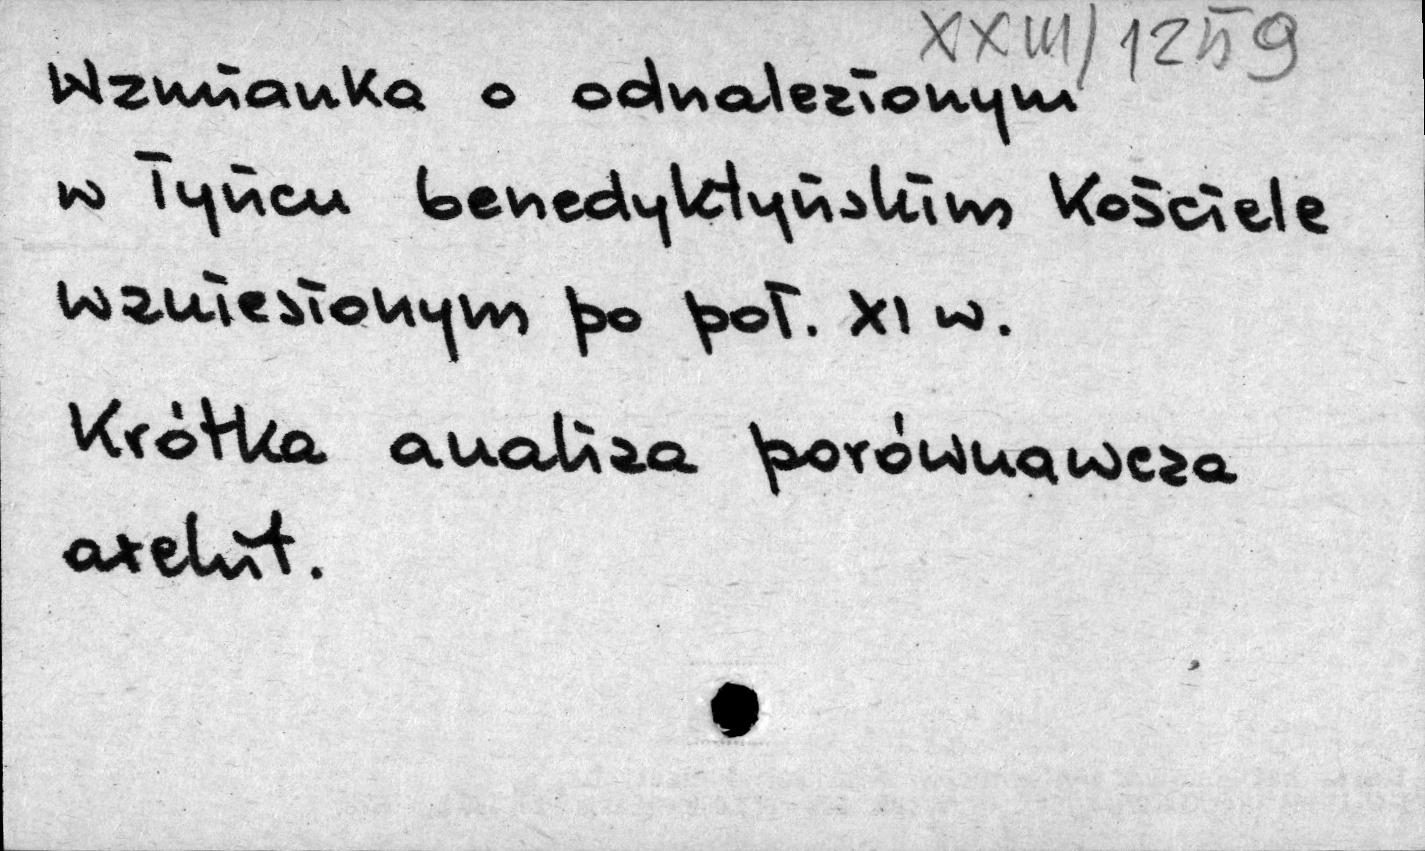 XXIII/1259
Wzmianka o odnalezionym
w Tyńcu benedyktyńskim Kościele
wzniesionym po poł. XI w.
Krótka analiza porównawcza
archit.